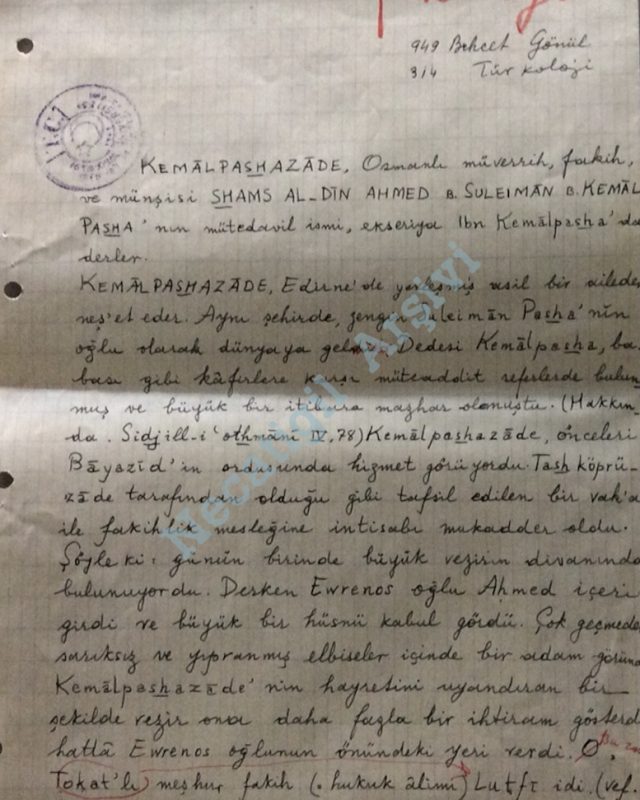 949 Behcet Gönül
3/4 Türkoloji
KEMĀLPASHAZĀDE, Osmanlı müverrih, fakih,
ve münşisi SHAMS AL-DĪN AHMED B. SULEIMĀN B. KEMĀL
PASHA'nın mütedavil ismi, ekseriya Ibn Kemālpasha'da
derler.
KEMĀLPASHAZĀDE, Edirne'de yerleşmiş asil bir aileden
neş'et eder. Aynı şehirde, zengin Suleimān Pasha'nīn
oğlu olarak dünyaya gelmiş. Dedesi Kemālpasha, ba
bası gibi kâfirlere karşı müteaddit seferlerde bulun
muş ve büyük bir itibara mazhar olmuştu. (Hakkın_
da. Sidjill-i 'othmānī IV, 78) Kemālpashazāde, önceleri
Bāyazīd'in ordusunda hizmet görüyordu. Tash köprü_
zāde tarafından olduğu gibi tafsil edilen bir vak'a
ile fakihlik mesleğine intisabı mukadder oldu.
Şöyle ki: günün birinde büyük vezirin divanında
bulunuyordu. Derken Ewrenos oğlu Aḥmed içeri
girdi ve büyük bir hüsnü kabul gördü. Çok geçmeden
sarıksız ve yıpranmış elbiseler içinde bir adam göründü
Kemālpashazāde'nin hayretini uyandıran bir
şekilde vezir ona daha fazla bir ihtiram gösterd
hattâ Ewrenos oğlunun önündeki yeri verdi. O,
Tokat'lı meşhur fakih (. hukuk âlimi) Lutfī idi. (vef.
Necatigil Arşivi